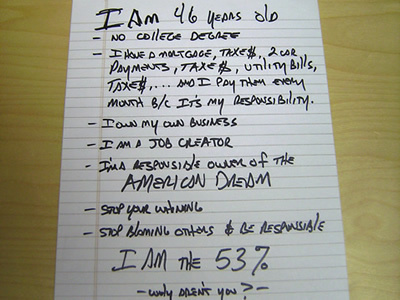 I AM 46 YEARS OLD
- NO COLLEGE DEGREE
- I HAVE A MORTGAGE, TAXE$, 2 CAR
PAYMENTS, TAXE$, UTILITY BILLS,
TAXE$,... AND I PAY THEM EVERY
MONTH B/C IT'S MY RESPONSIBILITY.
- I OWN MY OWN BUSINESS
- I AM A JOB CREATOR
- I'M A RESPONSIBLE OWNER OF THE
AMERICAN DREAM
- STOP YOUR WHINING
- STOP BLAMING OTHERS & BE RESPONSIBLE
I AM THE 53%
- WHY AREN'T YOU? -